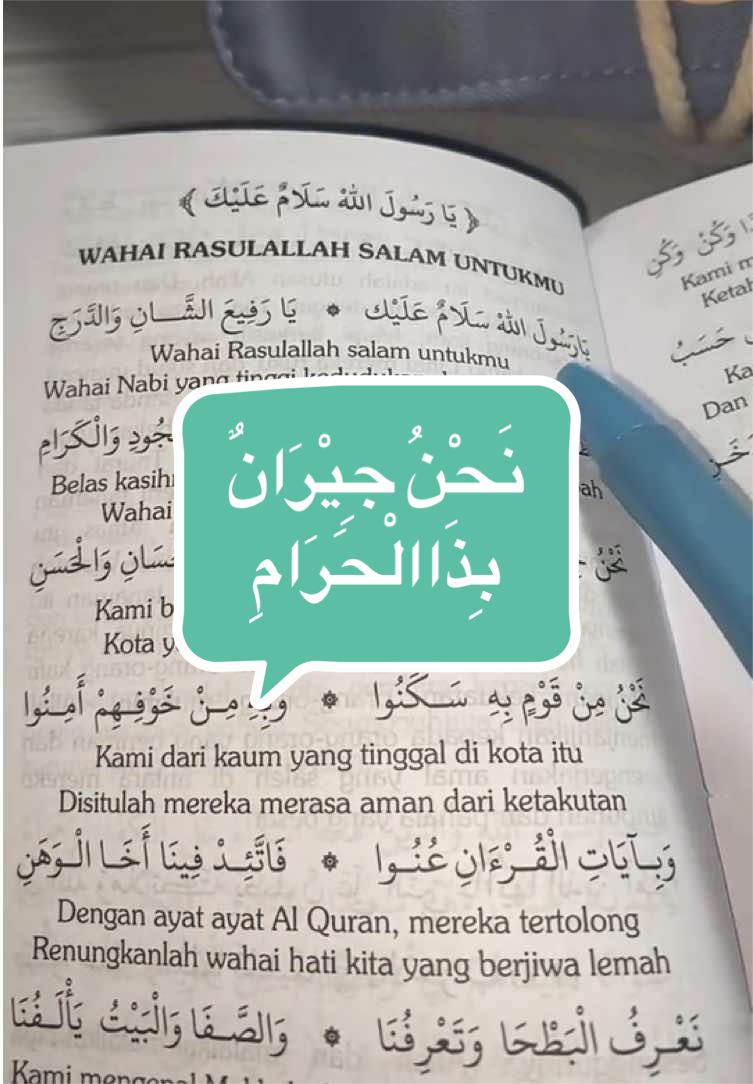 ﴿ يَا رَسُولَ اللهْ سَلَامٌ عَلَيْكَ ﴾
WAHAI RASULALLAH SALAM UNTUKMU
يَارَسُولَ اللهْ سَلَامٌ عَلَيْك ۞ يَا رَفِيعَ الشَّانِ وَالدَّرَجِ
Wahai Rasulallah salam untukmu
Wahai Nabi yang tinggi
جُودِ وَالْكَرَامِ
Belas kasih
ah
Wahai
نَحْنُ وَالْحَسَنِ
Kami b
Kota y
نَحْنُ جِيْرَانٌ
بِذَا الْحَرَامِ
نَحْنُ مِنْ قَوْمٍ بِهِ سَكَنُوا ۞ وَبِهِ مِنْ خَوْفِهِمْ أَمِنُوا
Kami dari kaum yang tinggal di kota itu
Disitulah mereka merasa aman dari ketakutan
وَبِآيَاتِ الْقُرْءَانِ عُنُوا ۞ فَاتَّئِدْ فِينَا أَخَا الْوَهَنِ
Dengan ayat ayat Al Quran, mereka tertolong
Renungkanlah wahai hati kita yang berjiwa lemah
نَعْرِفُ الْبَطْحَا وَتَعْرِفُنَا ۞ وَالصَّفَا وَالْبَيْتُ يَأْلَفُنَا
Kami mengenal
وَكُنْ وَكُنِ
Kami m
Ketah
حَسَبُ
Ka
Dan